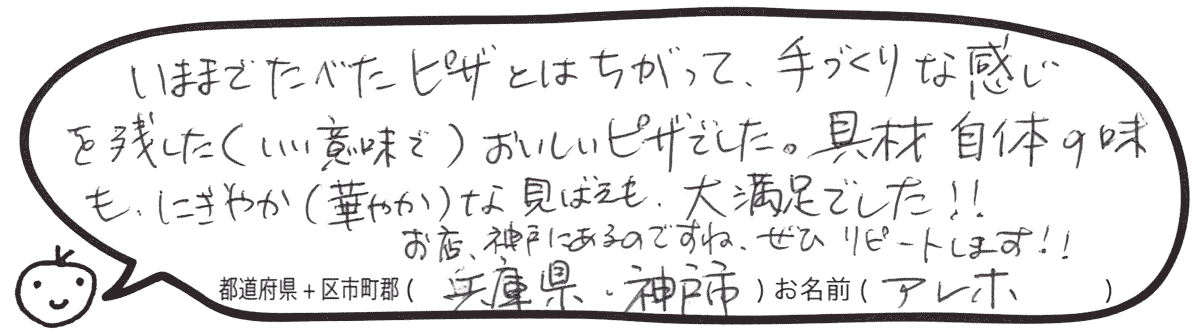 いままでたべたピザとはちがって、手づくりな感じ
を残した(いい意味で)おいしいピザでした。具材自体の味
も、にぎやか(華やか)な見ばえも、大満足でした!!
お店、神戸にあるのですね、ぜひリピートします!!
都道府県+区市町郡(兵庫県・神戸市)お名前(アレホ)